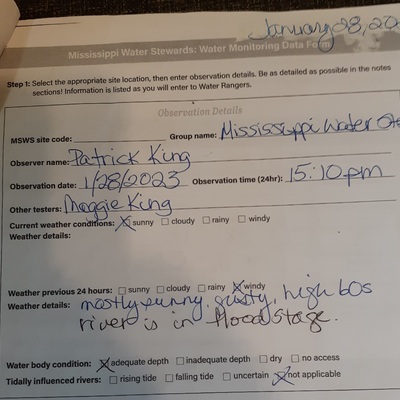 January 28, 20
Mississippi Water Stewards: Water Monitoring Data Form
Step 1: Select the appropriate site location, then enter observation details. Be as detailed as possible in the notes
sections! Information is listed as you will enter to Water Rangers.
Observation Details
MSWS site code: Group name: Mississippi Water Ste
Observer name: Patrick King
Observation date: 1/28/2023 Observation time (24hr): 15:10pm
Other testers: Maggie King
Current weather conditions: ☒ sunny ☐ cloudy ☐ rainy ☐ windy
Weather details:
Weather previous 24 hours: ☐ sunny ☐ cloudy ☐ rainy ☒ windy
Weather details: mostly sunny, gusty, high 60s
river is in flood stage.
Water body condition: ☒ adequate depth ☐ inadequate depth ☐ dry ☐ no access
Tidally influenced rivers: ☐ rising tide ☐ falling tide ☐ uncertain ☒ not applicable